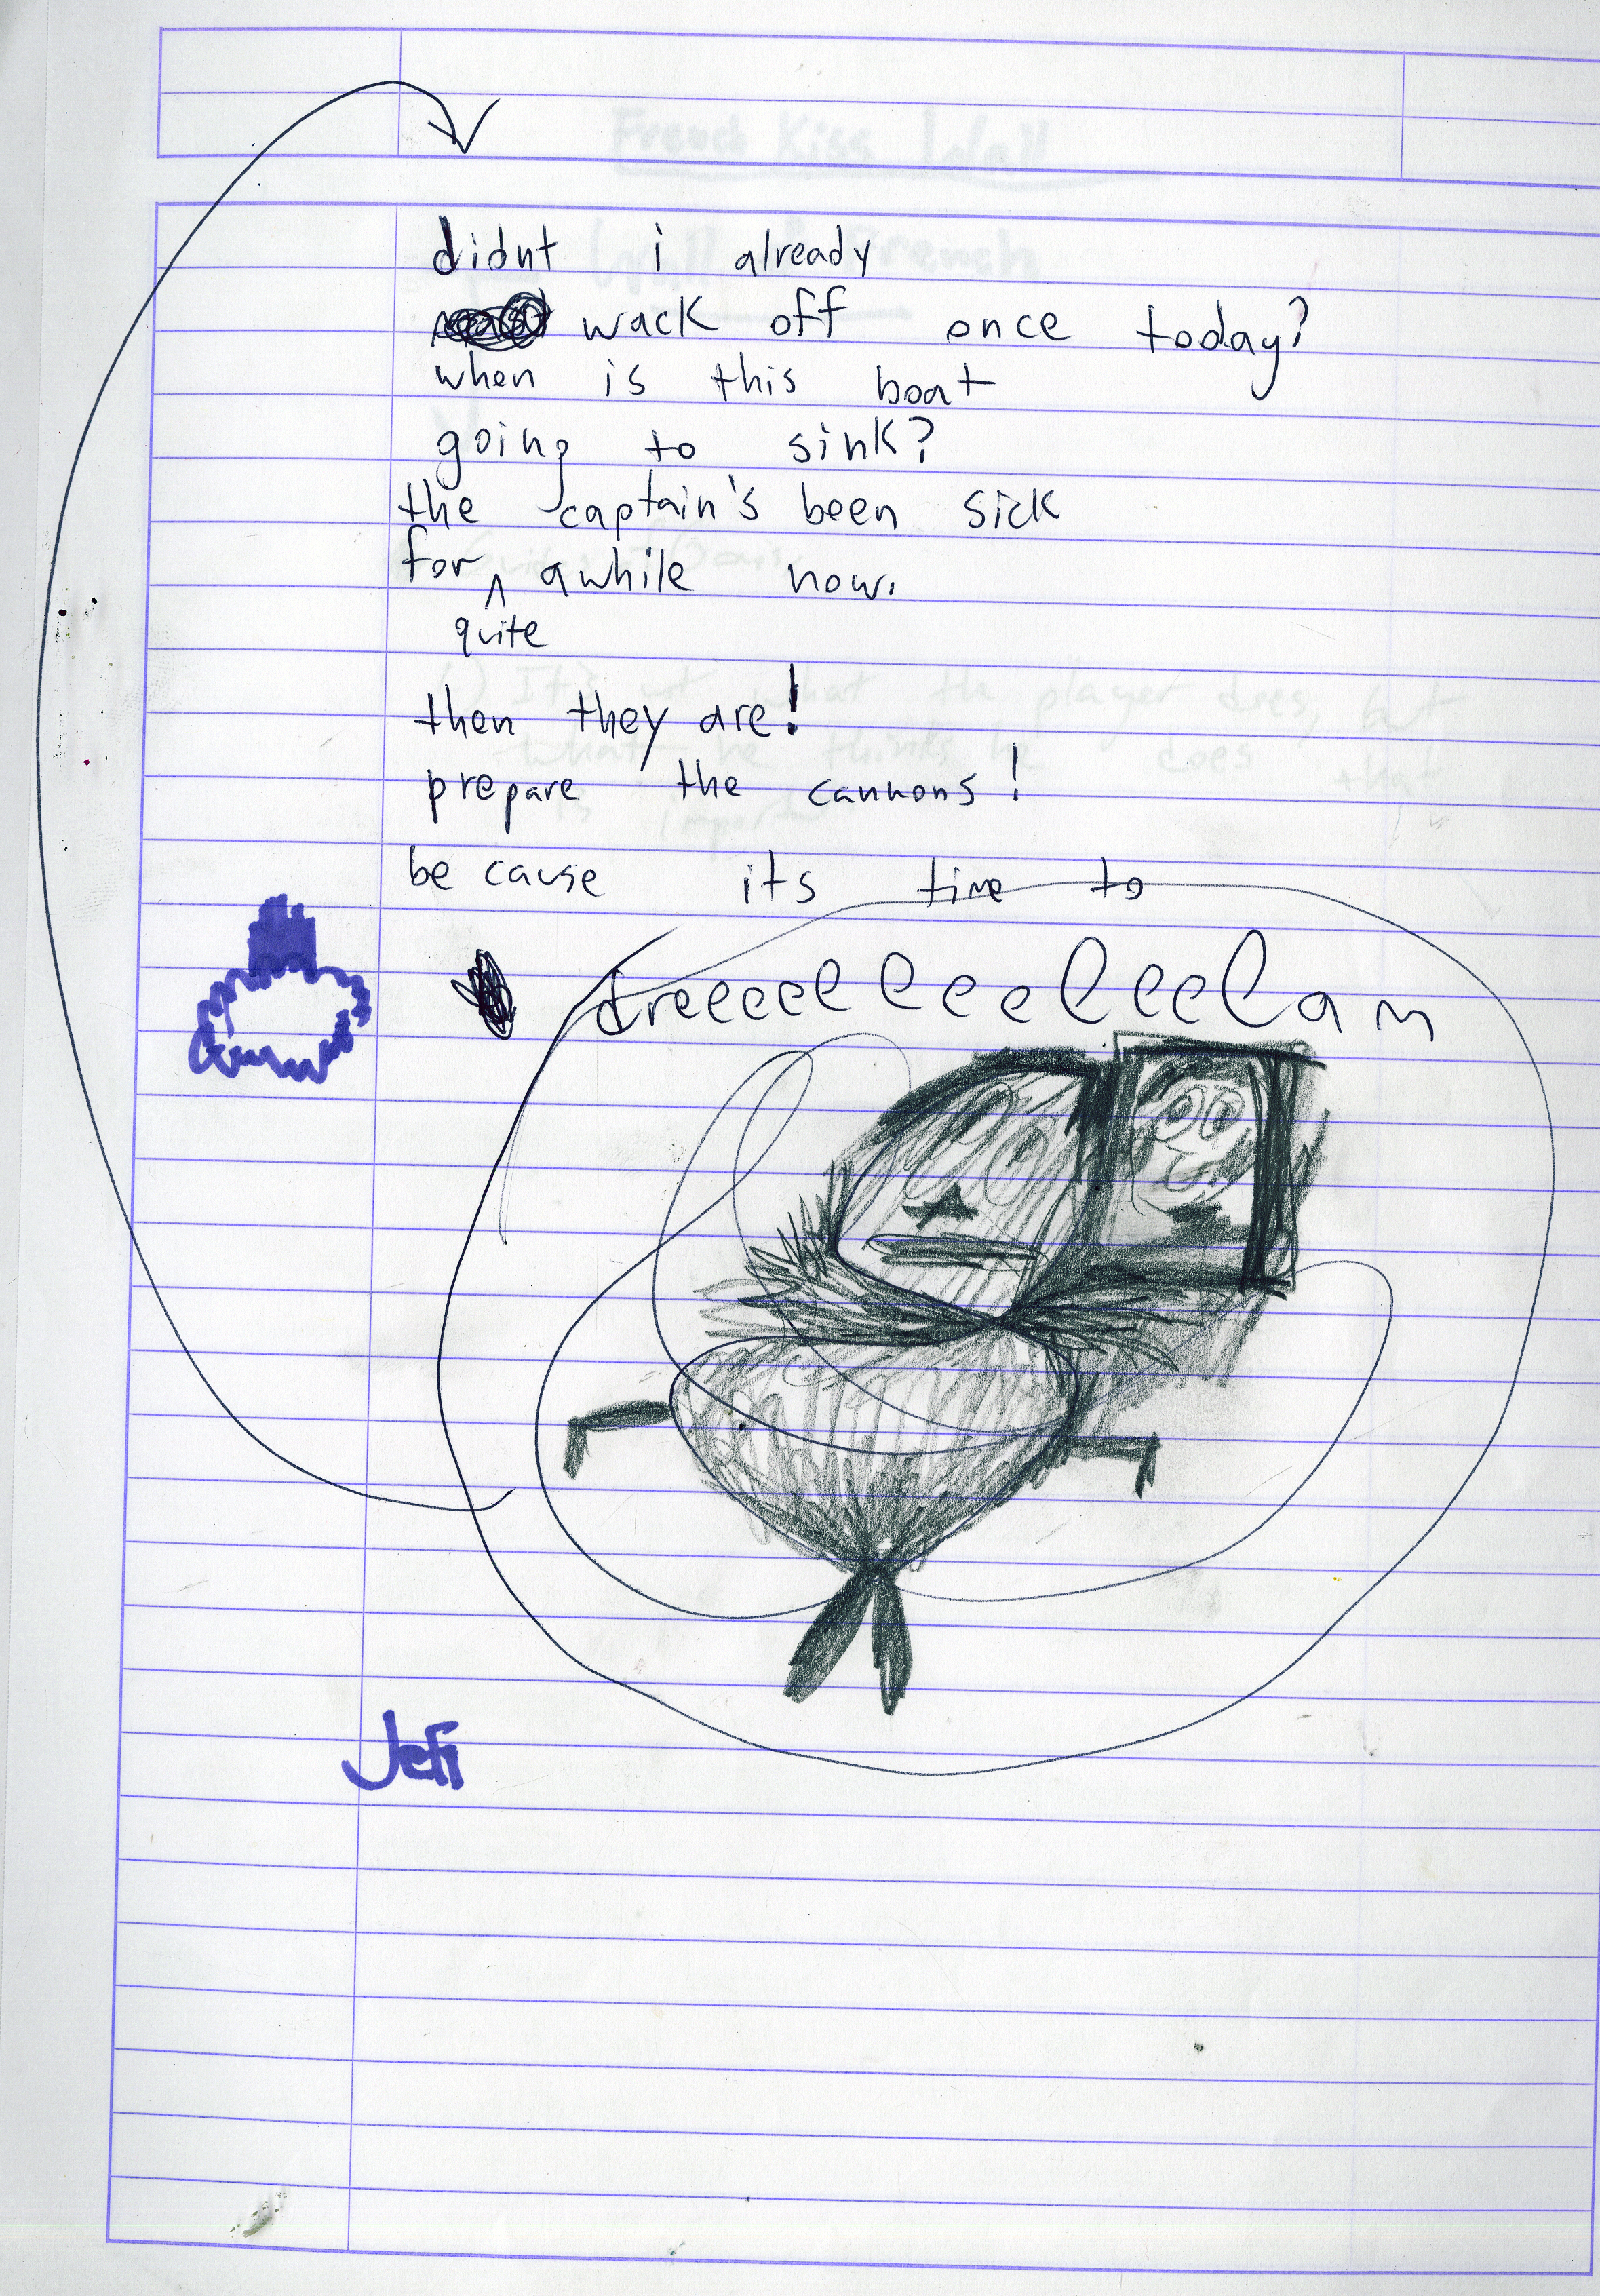 French Kiss Wall
didnt i already
wack off once today?
when is this boat
going to sink?
the captain's been sick
for ^ awhile now.
quite
then they are!
prepare the cannons!
be cause its time to
dreeeeeeeeeeeeam
Jefi